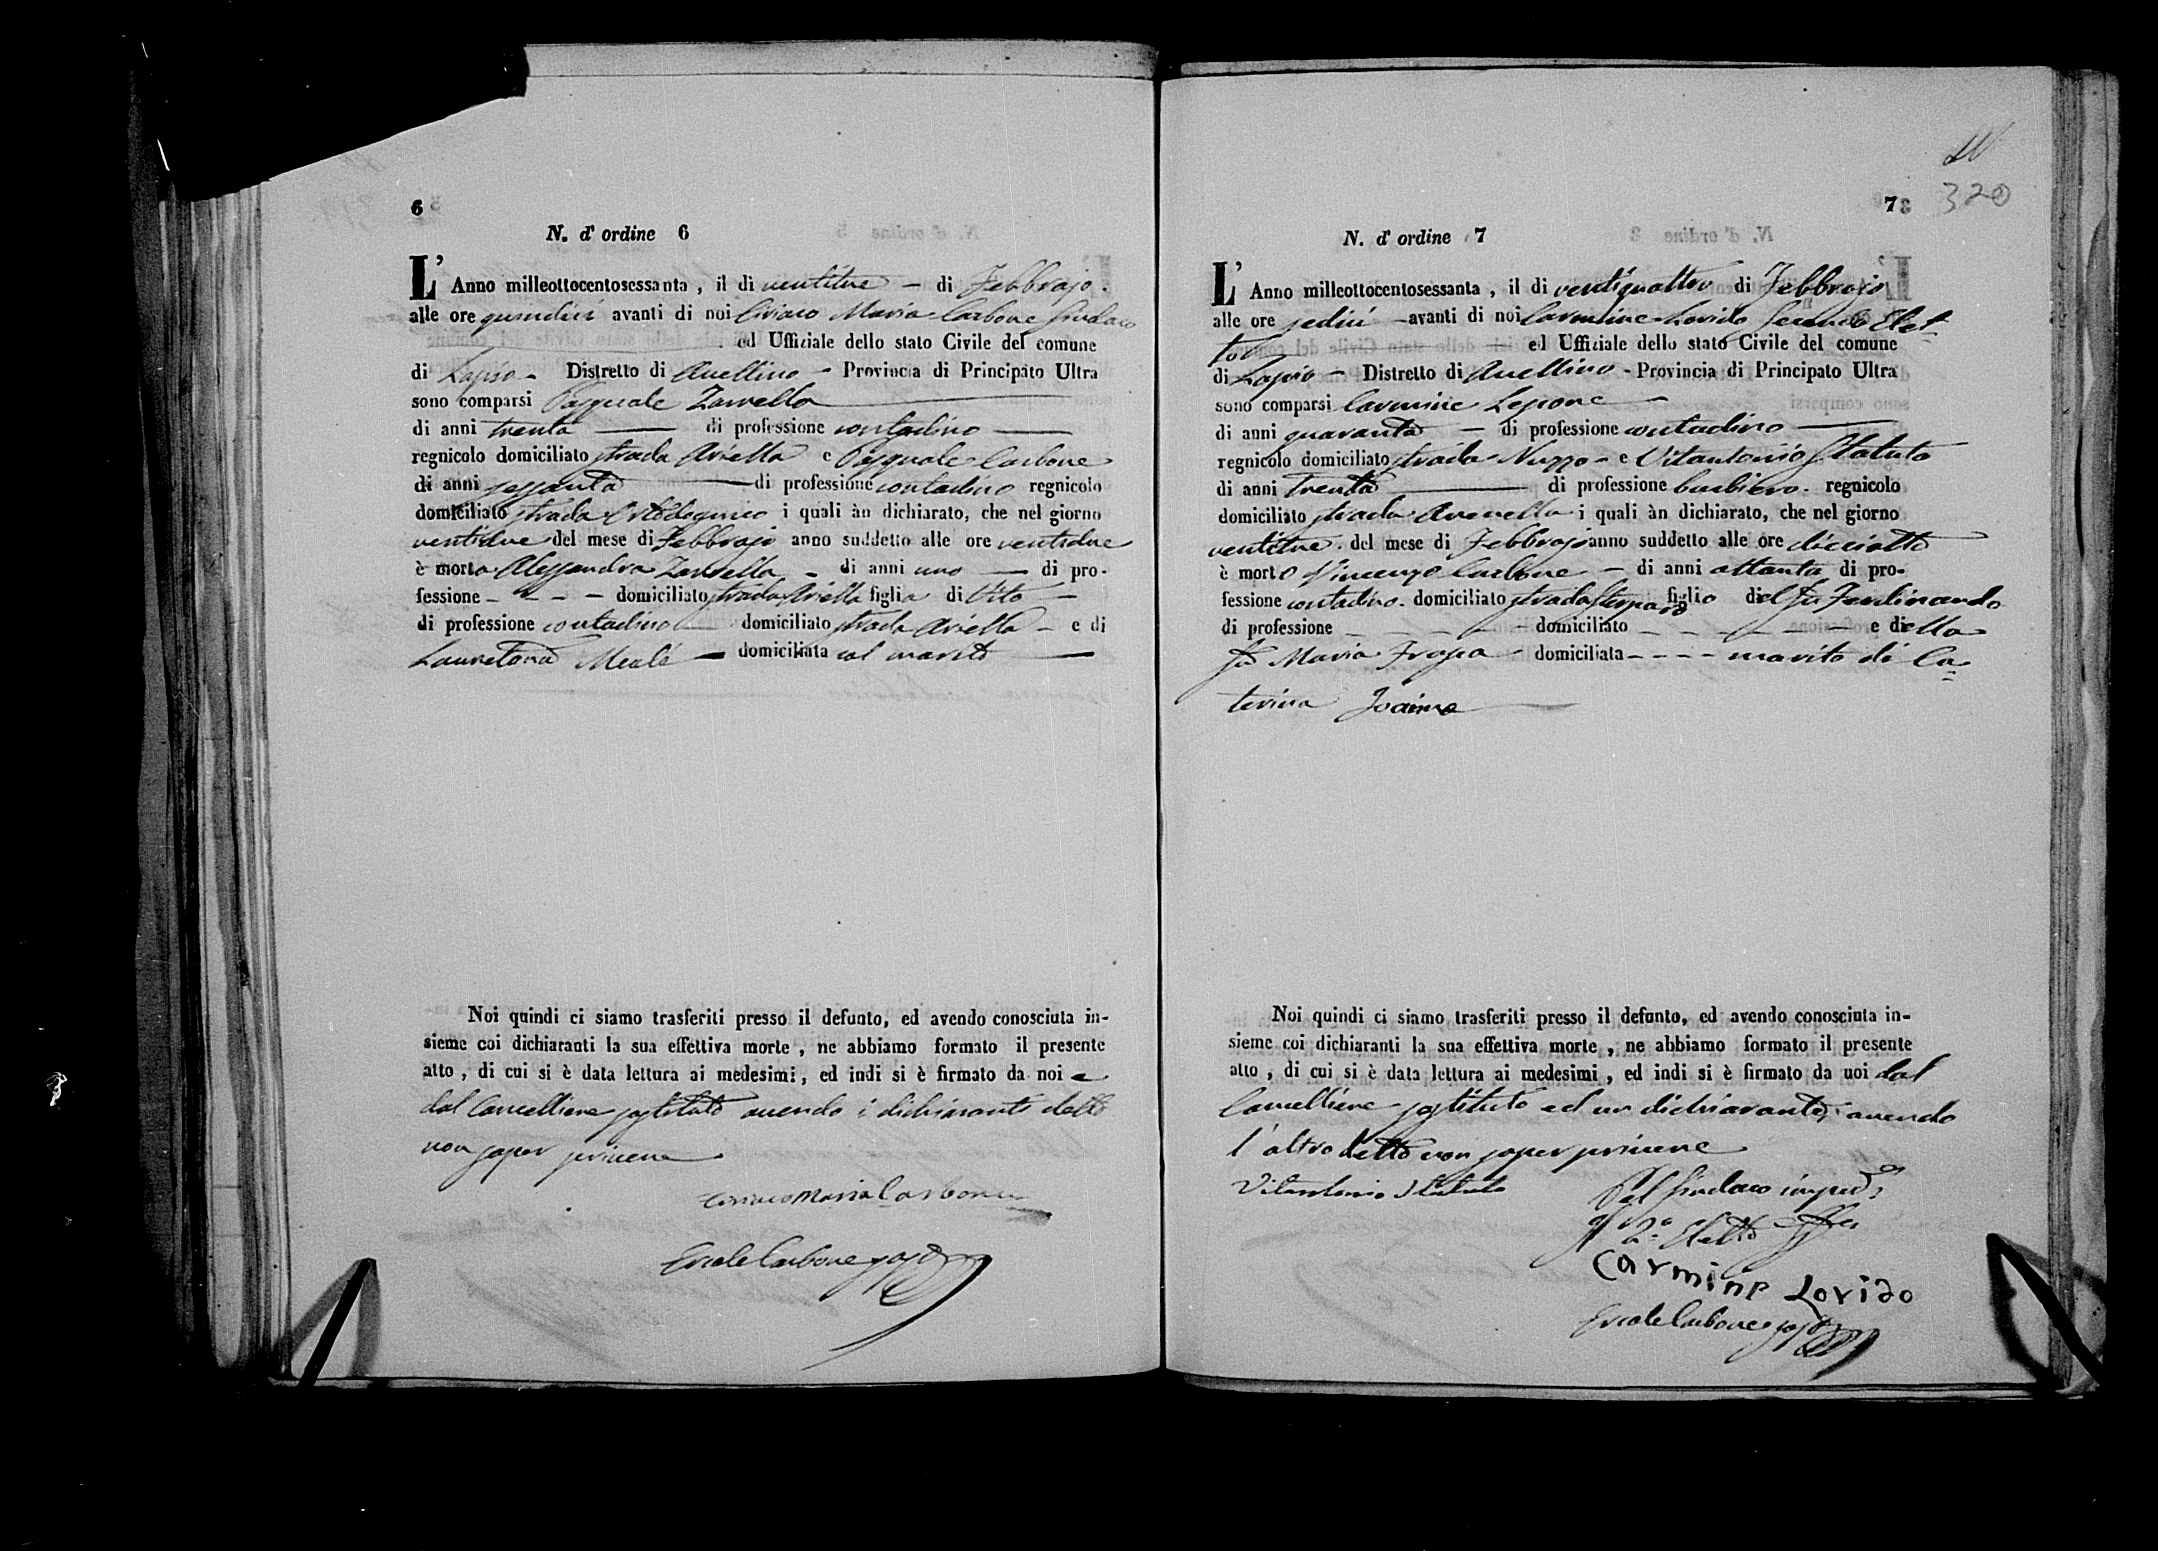 6
N. d' ordine 6
L' Anno milleottocentosessanta, il dì ventitre — di Febbrajo.
alle ore quindici avanti di noi Ciriaco Maria Carbone Sindaco
ed Uffiziale dello stato Civile del comune
di Lapio - Distretto di Avellino - Provincia di Principato Ultra
sono comparsi Pasquale Zarrella
di anni trenta — di professione contadino —
regnicolo domiciliato strada Ariella e Pasquale Carbone
di anni sessanta — di professione contadino regnicolo
domiciliato strada i quali àn dichiarato, che nel giorno
ventidue del mese di Febbrajo anno suddetto alle ore ventidue
è morta Alessandra Zarrella - di anni uno — di pro-
fessione - - - - domiciliato strada Ariella figlia di Vito —
di professione contadino — domiciliato strada Ariella - e di
Lauretana Meale — domiciliata col marito —
Noi quindi ci siamo trasferiti presso il defunto, ed avendo conosciuta in-
sieme coi dichiaranti la sua effettiva morte, ne abbiamo formato il presente
atto, di cui si è data lettura ai medesimi, ed indi si è firmato da noi e
dal Cancelliere sostituto avendo i dichiaranti detto
non saper scrivere
Ciriaco Maria Carbone
Ercole Carbone sost°
7
320
N. d' ordine 7
L' Anno milleottocentosessanta, il dì ventiquattro di Febbrajo
alle ore sedici - avanti di noi Carmine Lovido Secondo Elet-
to ed Uffiziale dello stato Civile del comune
di Lapio - Distretto di Avellino - Provincia di Principato Ultra
sono comparsi Carmine Lepore -
di anni quaranta - di professione contadino —
regnicolo domiciliato strada Nuzzo - e Vitantonio Statuto
di anni trenta — di professione barbiero. regnicolo
domiciliato strada i quali àn dichiarato, che nel giorno
ventitre. del mese di Febbrajo anno suddetto alle ore diciotto
è morto Vincenzo Carbone - di anni ottanta di pro-
fessione contadino. domiciliato strada figlio del fu Ferdinando
di professione - - - - domiciliato - - - - e della
fu Maria - domiciliata - - - - marito di Ca-
terina
Noi quindi ci siamo trasferiti presso il defunto, ed avendo conosciuta in-
sieme coi dichiaranti la sua effettiva morte, ne abbiamo formato il presente
atto, di cui si è data lettura ai medesimi, ed indi si è firmato da noi dal
Cancelliere sostituto ed un dichiarante, avendo
l'altro detto non saper scrivere
Vitantonio Statuto
Pel Sindaco imped°
Il 2° Eletto
Carmine Lovido
Ercole Carbone sost°